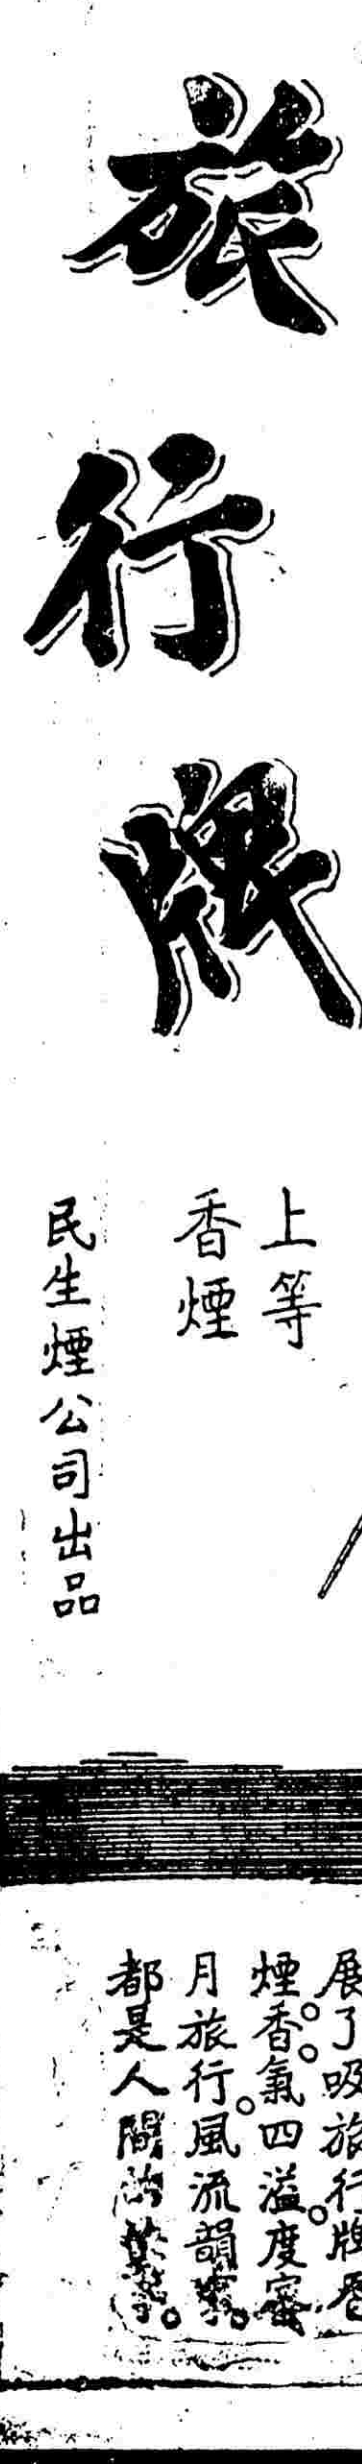 旅行牌
上等
香煙
民生煙公司出品
展了吸旅行牌香
煙。香。氣四溢。度蜜
月旅行。風流韻事。
都是人間的樂事。